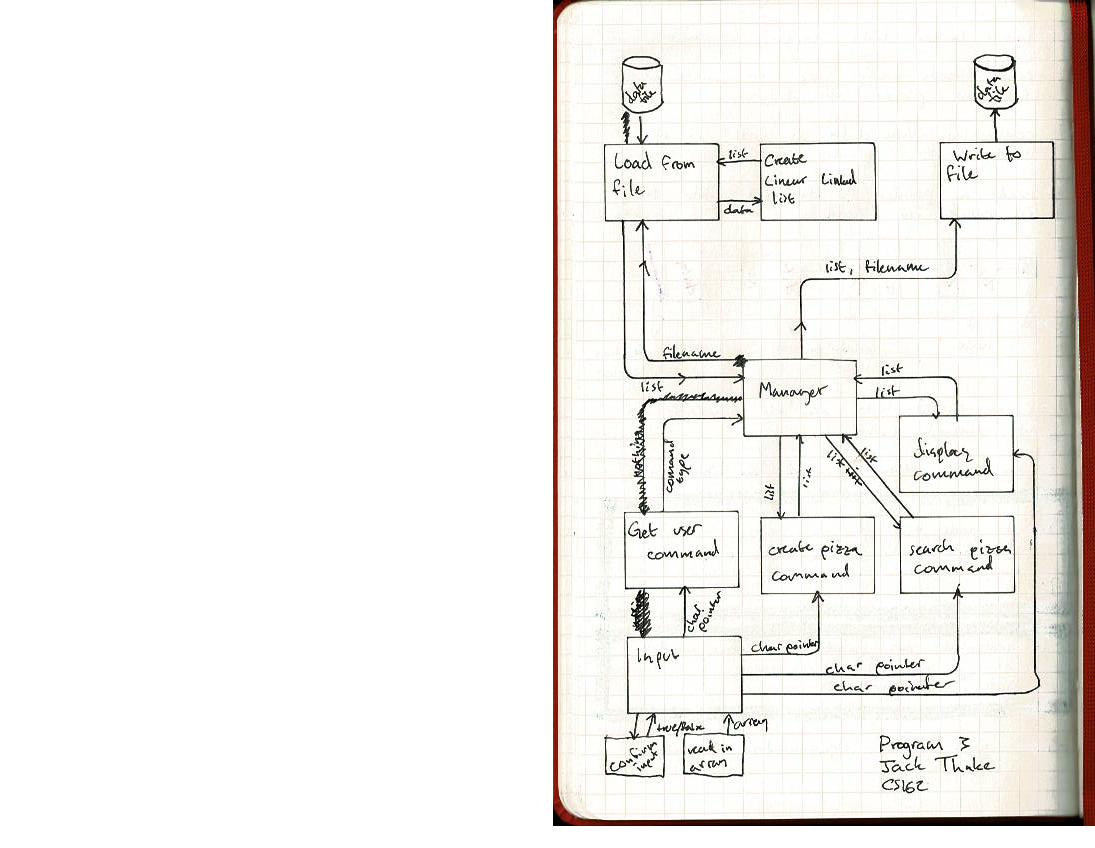 data
file
data
file
Load from
file
list
data
Create
Linear Linked
list
Write to
file
list, filename
filename
list
Manager
list
list
display
command
command
type
list
list
list
list
Get user
command
create pizza
command
search pizza
command
char
pointer
Input
char pointer
char pointer
char pointer
true/false
array
confirm
input
read in
array
Program 3
Jack Thake
CS162